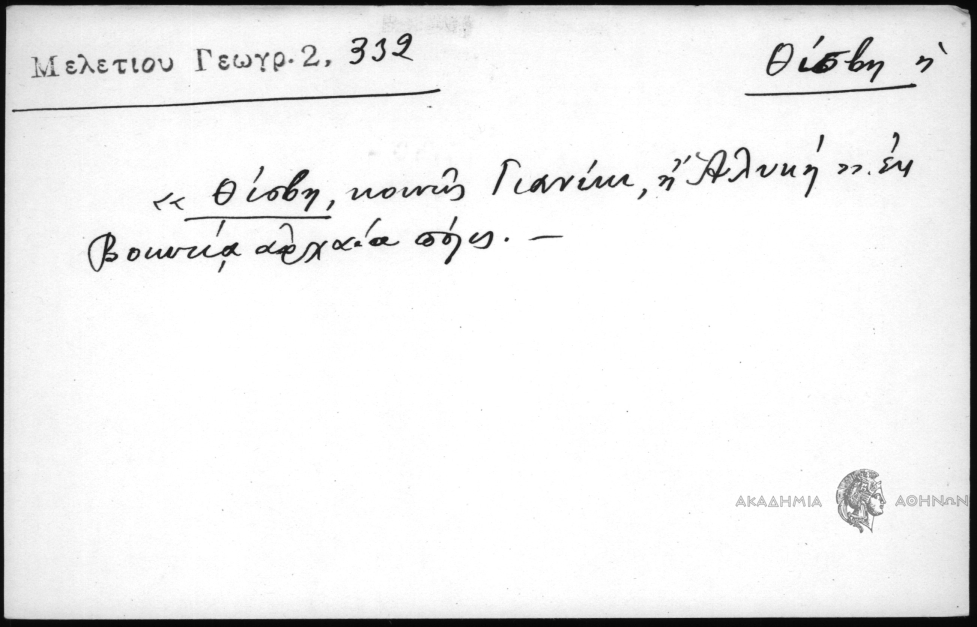 Μελετιου Γεωγρ. 2, 332
Θίσβη ἡ
« Θίσβη, κοινῶς Γιανίκι, ἢ Ἀλυκή ». ἐν
Βοιωτίᾳ ἀρχαία πόλις. —
ΑΚΑΔΗΜΙΑ ΑΘΗΝΩΝ